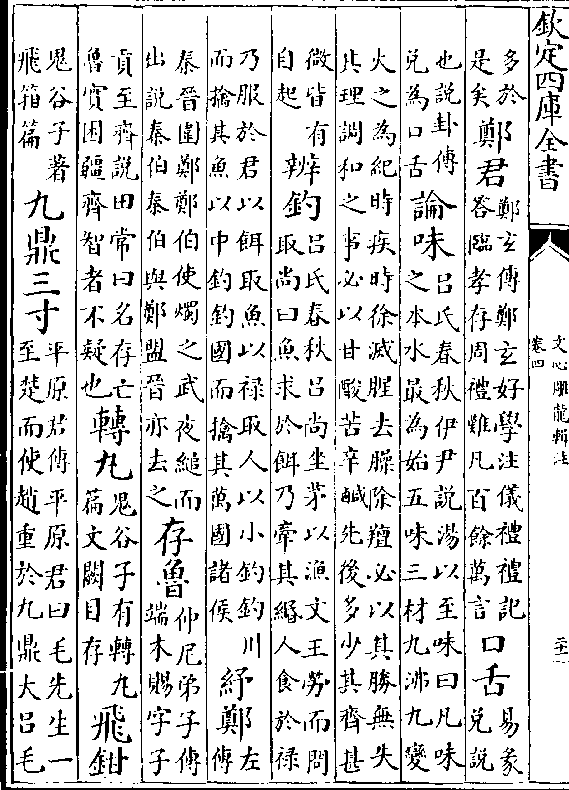 欽定四庫全書
文心雕龍輯注
卷四
多於
是矣
鄭君
鄭玄傳鄭玄好學注儀禮禮記
答臨孝存周禮難凡百餘萬言
口舌
易象
兌說
也說卦傳
兌為口舌
論味
呂氏春秋伊尹說湯以至味曰凡味
之本水最為始五味三材九沸九變
火之為紀時疾時徐滅腥去臊除羶必以其勝無失
其理調和之事必以甘酸苦辛鹹先後多少其齊甚
微皆有
自起
辨釣
呂氏春秋呂尚坐茅以漁文王勞而問
取尚曰魚求於餌乃牽其緡人食於祿
乃服於君以餌取魚以祿取人以小釣釣川
而擒其魚以中釣釣國而擒其萬國諸侯
紓鄭
左
傳
秦晉圍鄭鄭伯使燭之武夜縋而
出說秦伯秦伯與鄭盟晉亦去之
存魯
仲尼弟子傳
端木賜字子
貢至齊說田常曰名存亡
魯實困疆齊智者不疑也
轉丸
鬼谷子有轉丸
篇文闕目存
飛鉗
鬼谷子著
飛箝篇
九鼎三寸
平原君傳平原君曰毛先生一
至楚而使趙重於九鼎大呂毛